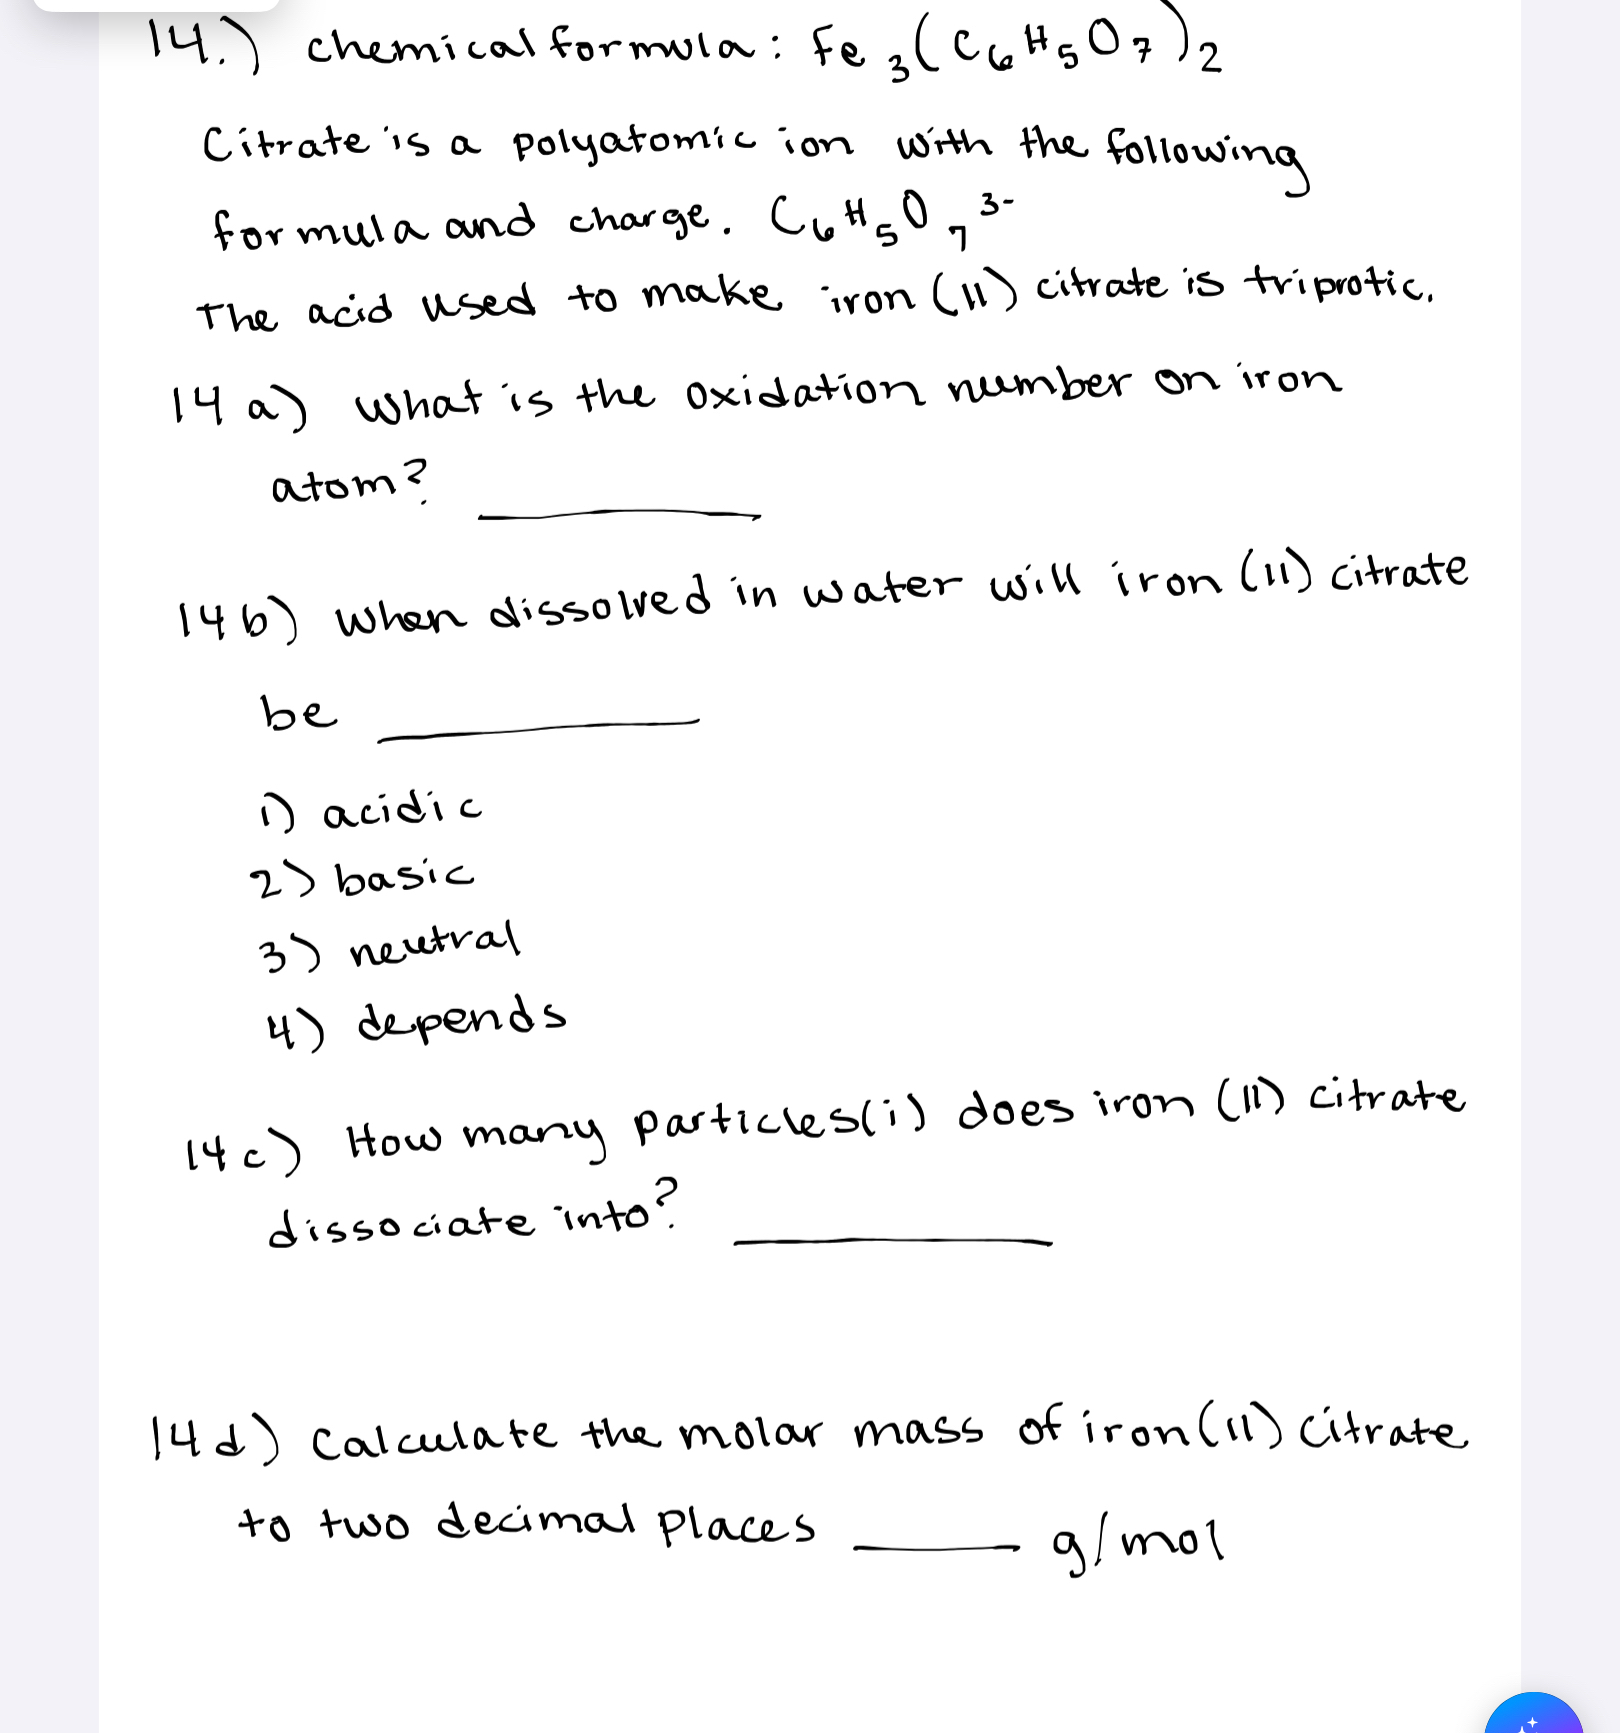 14.) chemical formula: Fe₃(C₆H₅O₇)₂
Citrate is a polyatomic ion with the following
formula and charge. C₆H₅O₇³⁻
The acid used to make iron (11) citrate is triprotic.
14 a) what is the oxidation number on iron
atom? ________
14 b) when dissolved in water will iron (11) citrate
be ________
1) acidic
2) basic
3) neutral
4) depends
14 c) How many particles(i) does iron (11) citrate
dissociate into? ________
14 d) Calculate the molar mass of iron (11) citrate
to two decimal places ____ g/mol